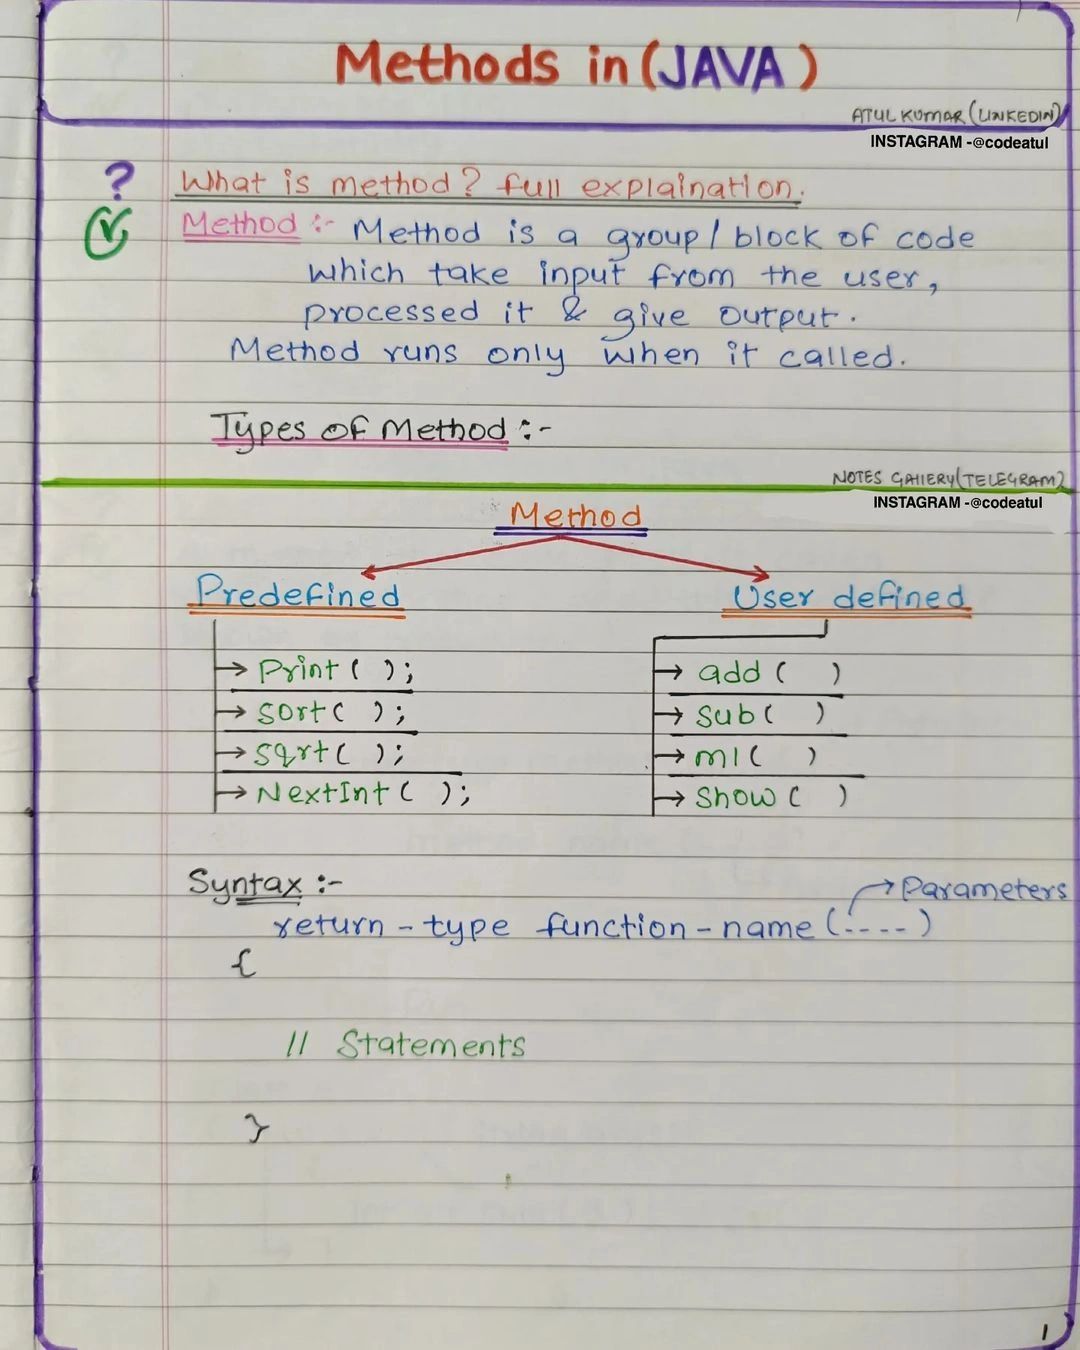 Methods in (JAVA)
ATUL KUMAR (LINKEDIN)
INSTAGRAM -@codeatul
? What is method? full explaination.
Method :- Method is a group / block of code
which take input from the user,
processed it & give output.
Method runs only when it called.
Types of Method :-
NOTES GAllERY(TELEGRAM)
INSTAGRAM -@codeatul
Method
Predefined
User defined
Print ( );
sort ( );
sqrt ( );
NextInt ( );
add ( )
Sub ( )
ml ( )
Show ( )
Syntax :-
Parameters
return - type function - name (----)
{
// Statements
}
1